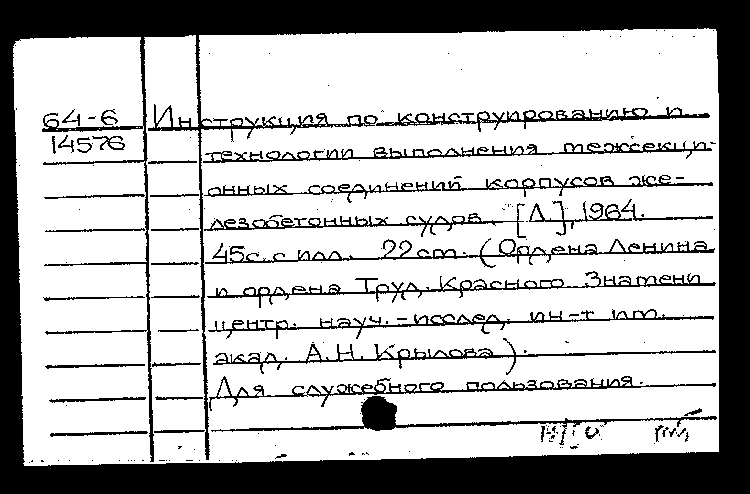 64-6 Инструкция по конструированию и
14576 технологии выполнения межсекци-
онных соединений корпусов же-
лезобетонных судов. [Л.], 1964.
45с. с илл. 22см. (Ордена Ленина
и ордена Труд. Красного Знамени
центр. науч.-исслед. ин-т им.
акад. А.Н. Крылова).
Для служебного пользования.